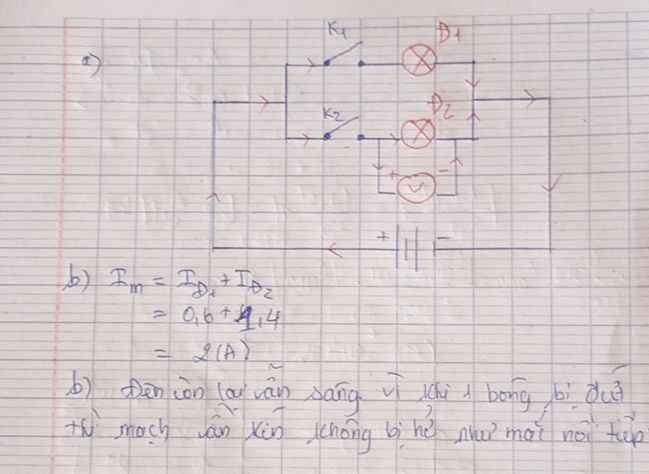 a)
K1
Đ1
K2
Đ2
+ V -
+ -
b) Im = IĐ1 + IĐ2
= 0,6 + 1,4
= 2(A)
b) Đèn còn lại vẫn sáng vì khi 1 bóng bị đứt
thì mạch vẫn kín không bị hở như mắc nối tiếp